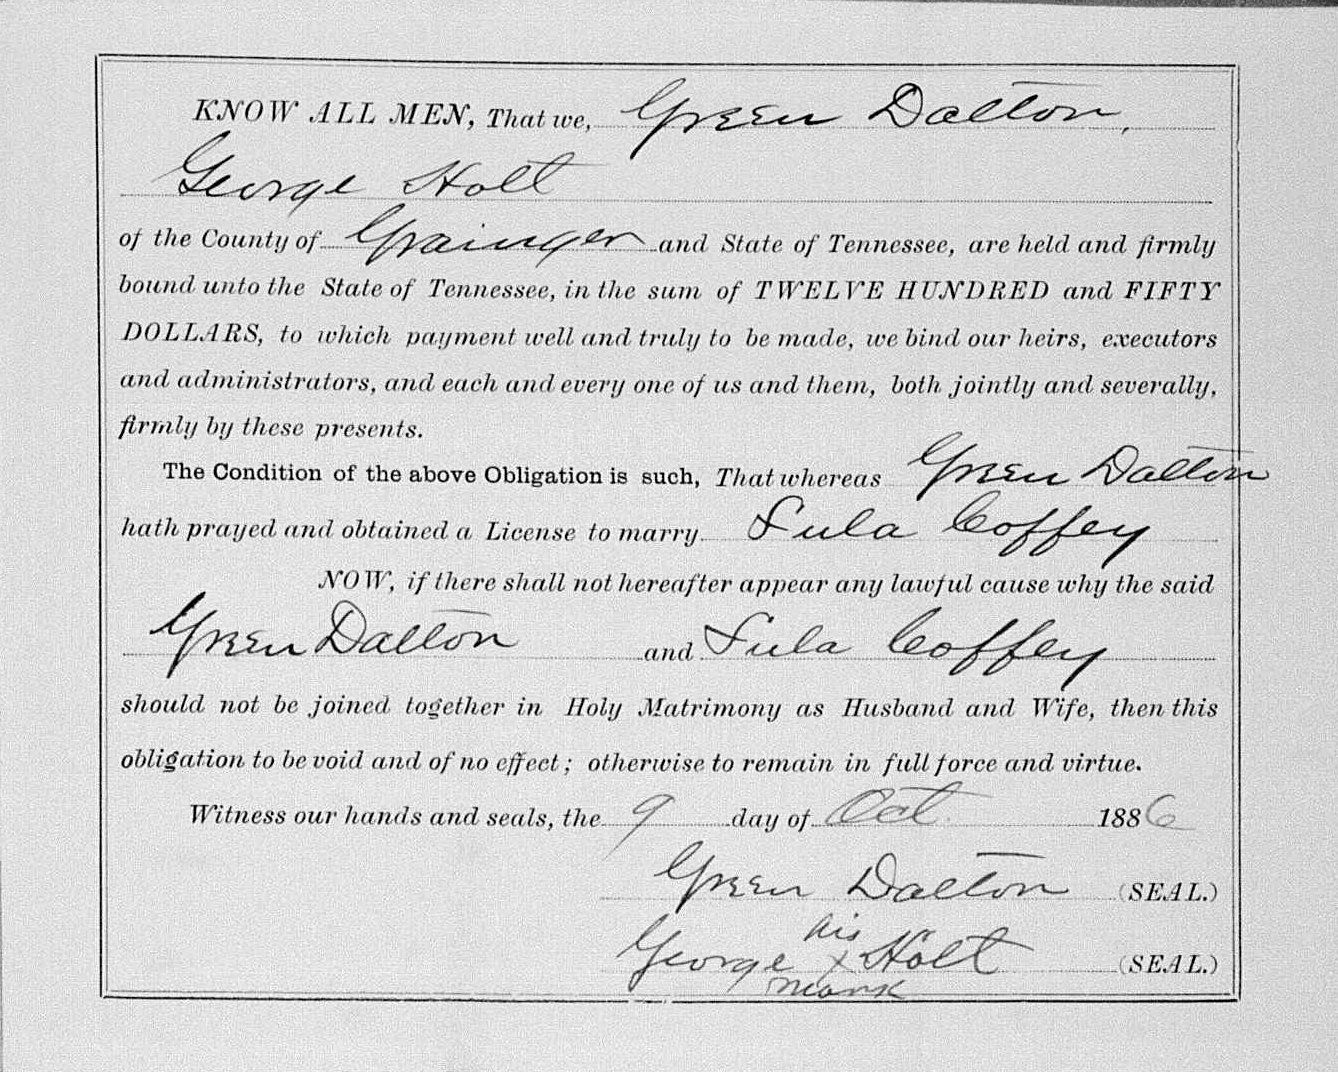 KNOW ALL MEN, That we, Green Dalton,
George Holt
of the County of Grainger and State of Tennessee, are held and firmly
bound unto the State of Tennessee, in the sum of TWELVE HUNDRED and FIFTY
DOLLARS, to which payment well and truly to be made, we bind our heirs, executors
and administrators, and each and every one of us and them, both jointly and severally,
firmly by these presents.
The Condition of the above Obligation is such, That whereas Green Dalton
hath prayed and obtained a License to marry Lula Coffey
NOW, if there shall not hereafter appear any lawful cause why the said
Green Dalton and Lula Coffey
should not be joined together in Holy Matrimony as Husband and Wife, then this
obligation to be void and of no effect; otherwise to remain in full force and virtue.
Witness our hands and seals, the 9 day of Oct. 1886
Green Dalton (SEAL.)
his
George x Holt (SEAL.)
mark